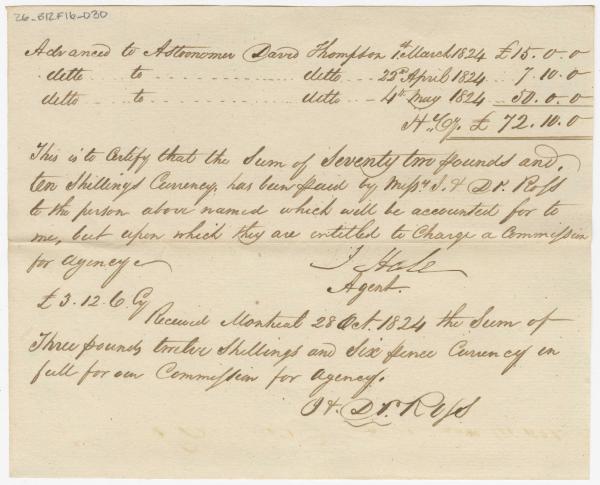 26-B12F16-030
Advanced to Astronomer David Thompson 1st March 1824 £15.0.0
ditto to ditto 22d April 1824 7.10.0
ditto to ditto 4th May 1824 50.0.0
Hx. Cy. £ 72.10.0
This is to Certify that the Sum of Seventy two pounds and
ten Shillings Currency, has been paid by Messrs J. & Dd. Ross
to the person above named which will be accounted for to
me, but upon which they are entitled to Charge a Commission
for agency
J Hale
Agent.
£3.12.6 Cy
Received Montreal 28 Oct. 1824 the Sum of
Three pounds twelve Shillings and Six pence Currency in
full for our Commission for Agency.
Dd. Ross